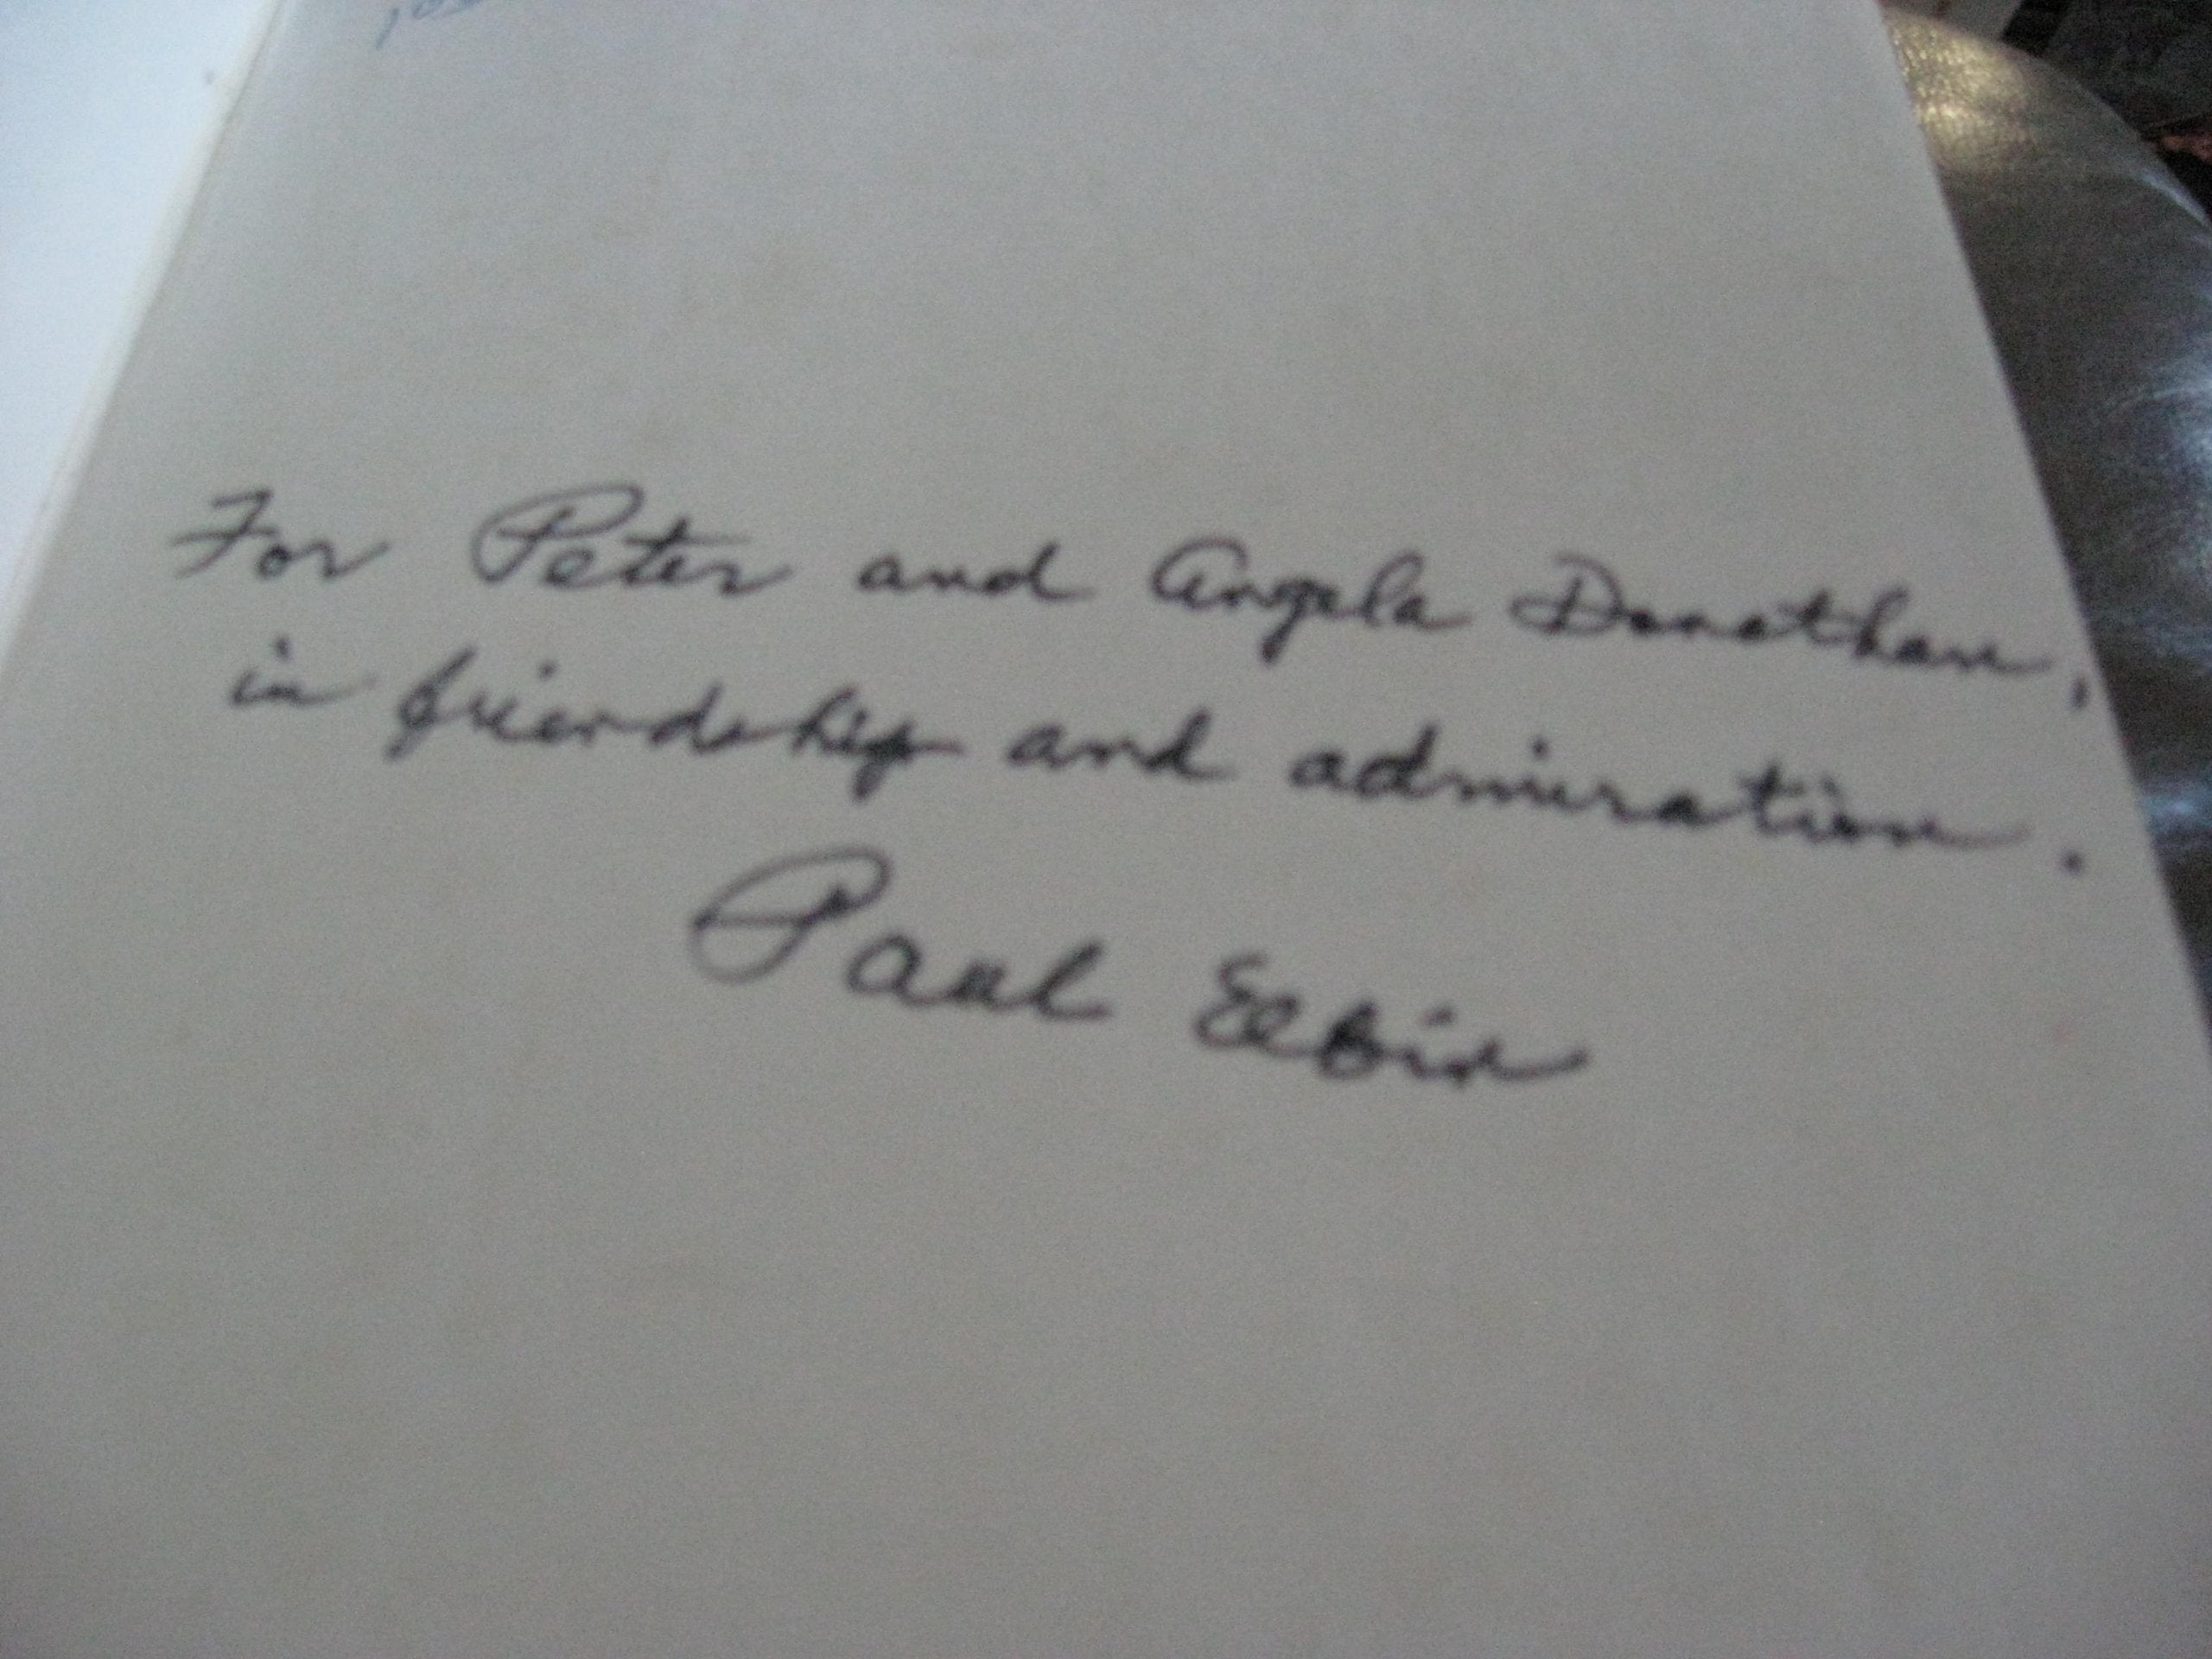 For Peter and Angela Donathan,
in friendship and admiration.
Paul Elbin